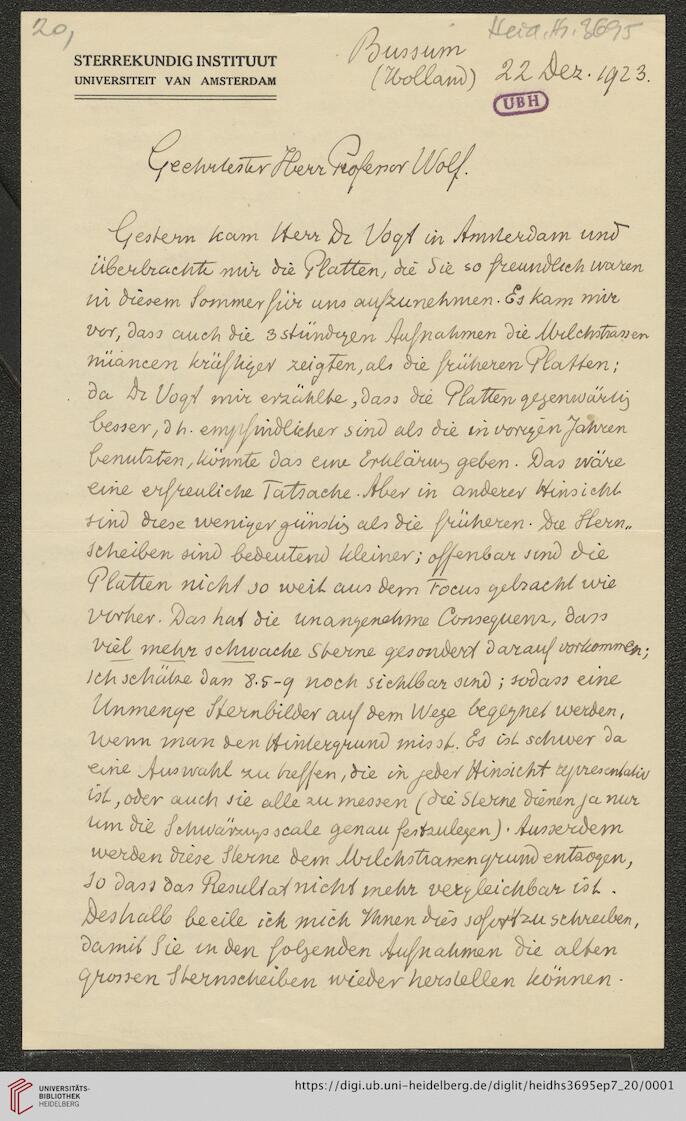 20,
Heid. Hs. 3695
STERREKUNDIG INSTITUUT
UNIVERSITEIT VAN AMSTERDAM
Bussum
(Holland) 22 Dez. 1923.
UBH
Geehrtester Herr Professor Wolf.
Gestern kam Herr Dr Vogt in Amsterdam und
überbrachte mir die Platten, die Sie so freundlich waren
in diesem Sommer für uns aufzunehmen. Es kam mir
vor, dass auch die 3 stündigen Aufnahmen die Milchstrassen
nüancen kräftiger zeigten, als die früheren Platten;
da Dr Vogt mir erzählte, dass die Platten gegenwärtig
besser, d h. empfindlicher sind als die in vorigen Jahren
benutzten, könnte das eine Erklärung geben. Das wäre
eine erfreuliche Tatsache. Aber in anderer Hinsicht
sind diese weniger günstig als die früheren. Die Stern„
scheiben sind bedeutend kleiner; offenbar sind die
Platten nicht so weit aus dem Focus gebracht wie
vorher. Das hat die unangenehme Consequenz, dass
viel mehr schwache Sterne gesondert darauf vorkommen;
ich schätze dass 8.5-9 noch sichtbar sind; sodass eine
Unmenge Sternbilder auf dem Wege begegnet werden,
wenn man den Hintergrund misst. Es ist schwer da
eine Auswahl zu treffen, die in jeder Hinsicht representativ
ist, oder auch sie alle zu messen (die Sterne dienen ja nur
um die Schwärzungsscale genau festzulegen). Ausserdem
werden diese Sterne dem Milchstrassengrund entzogen,
so dass das Resultat nicht mehr vergleichbar ist.
Deshalb beeile ich mich Ihnen dies sofort zu schreiben,
damit Sie in den folgenden Aufnahmen die alten
grossen Sternscheiben wieder herstellen können.
UNIVERSITÄTS-
BIBLIOTHEK
HEIDELBERG
https://digi.ub.uni-heidelberg.de/diglit/heidhs3695ep7_20/0001